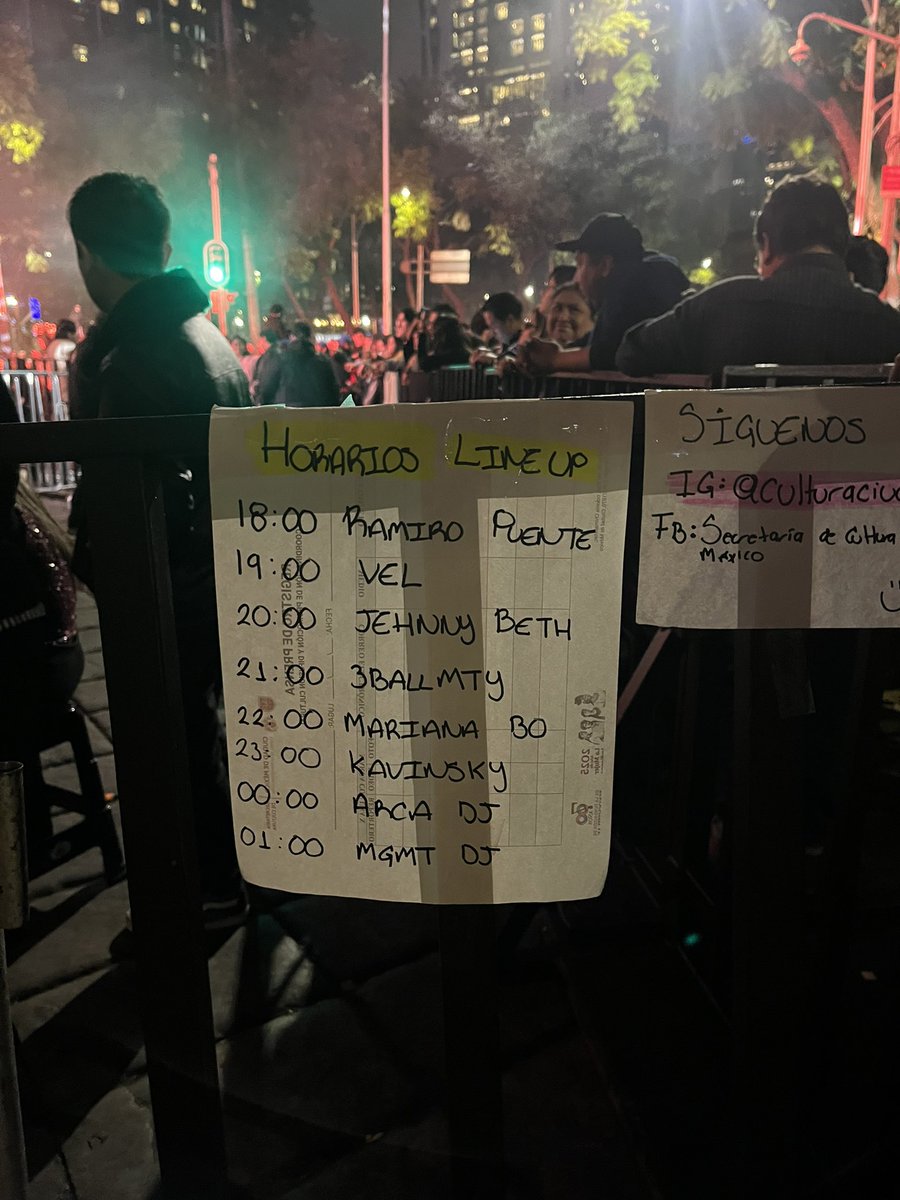 HORARIOS LINEUP
18:00 RAMIRO PUENTE
19:00 VEL
20:00 JEHNNY BETH
21:00 3BALLMTY
22:00 MARIANA BO
23:00 KAVINSKY
00:00 ARCA DJ
01:00 MGMT DJ
SÍGUENOS
IG: @culturaciu
FB: Secretaría de Cultura
MÉXICO
REGISTRO DE PRENSA
FECHA
LUGAR
2025